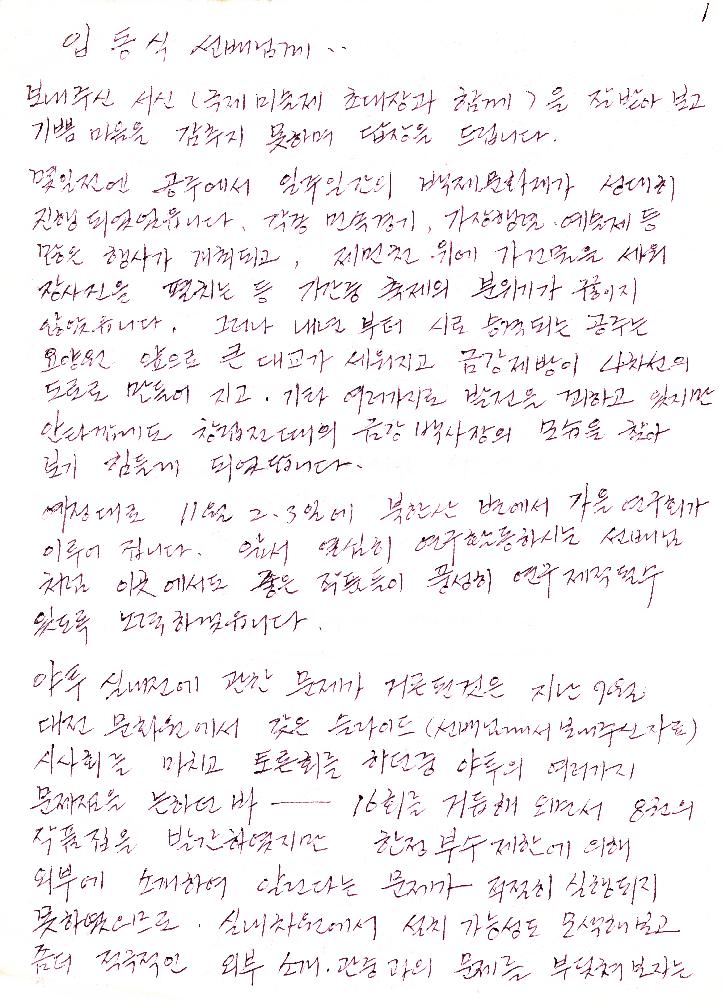 1
임동식 선배님께..
보내주신 서신 (국제미술제 초대장과 함께)을 잘 받아 보고
기쁜 마음을 감추지 못하며 답장을 드립니다.
몇일전엔 공주에서 일주일간의 백제문화제가 성대히
진행 되었었읍니다. 각종 민속경기, 가장행렬·예술제 등
많은 행사가 개최되고, 제민천 위에 가건물을 세워
장사진을 펼치는 등 기간중 축제의 분위기가 끊이지
않았읍니다. 그러나 내년 부터 시로 승격되는 공주는
요양원 앞으로 큰 대교가 세워지고 금강제방이 4차선의
도로로 만들어 지고. 기타 여러가지로 발전을 꾀하고 있지만
안타깝게도 창립전때의 금강 백사장의 모습을 찾아
보기 힘들게 되었읍니다.
예정대로 11월 2.3일에 북한산 변에서 가을 연구회가
이루어 집니다. 앞서 열심히 연구활동하시는 선배님
처럼 이곳에서도 좋은 작품들이 풍성히 연구제작될수
있도록 노력하겠읍니다.
야투 실내전에 관한 문제가 거론된것은 지난 9월
대전 문화원에서 갖은 슬라이드 (선배님께서 보내주신자료)
시사회를 마치고 토론회를 하던중 야투의 여러가지
문제점을 논하던 바 —— 16회를 거듭해 오면서 8권의
작품집을 발간하였지만 한정부수제한에 의해
외부에 소개하여 알린다는 문제가 적절히 실행되지
못하였으므로. 실내차원에서 설치 가능성도 모색해보고
좀더 적극적인 외부 소개·관중과의 문제를 부딪쳐보자는